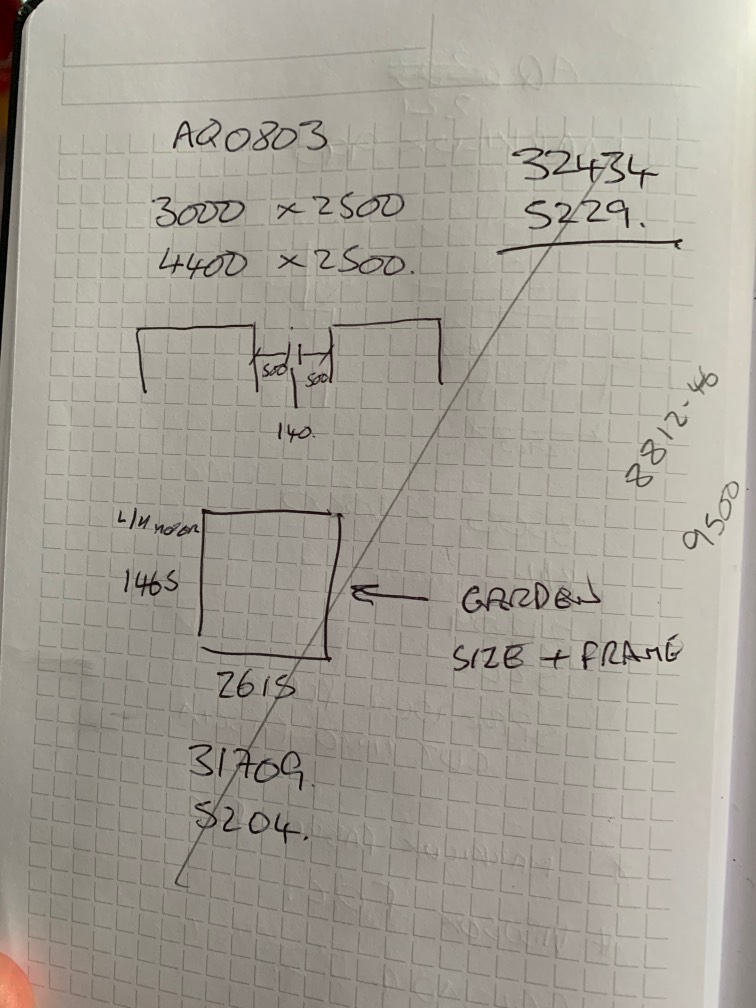 AQ0803
3000 x 2500
4400 x 2500.
32434
5229.
500
500
140.
8812-46
9500
1465
2615
GARDEN
SIZE + FRAME
31709.
5204.